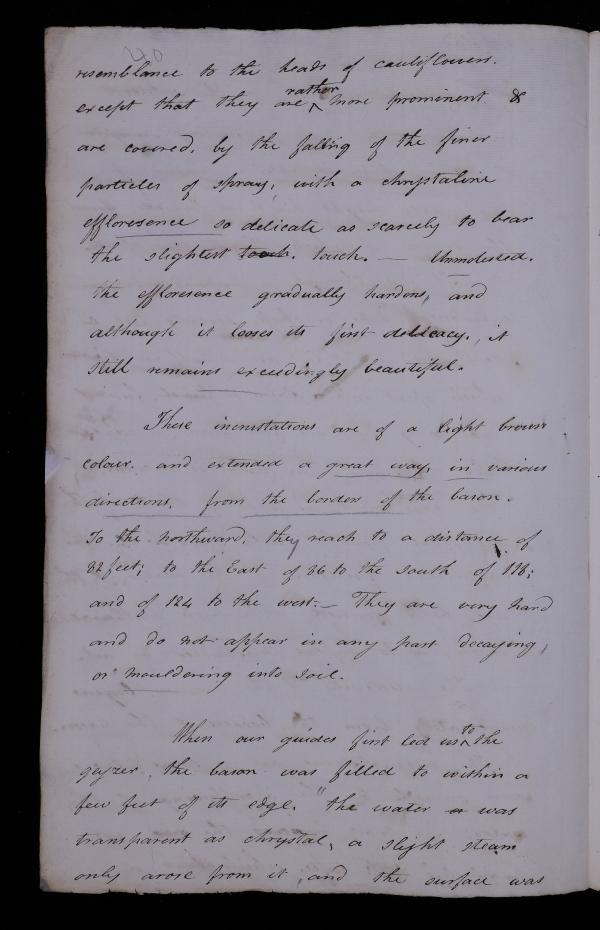 resemblance to the heads of cauliflowers.
except that they are rather more prominent &
are covered, by the falling of the finer
particles of spray, with a chrystaline
effloresence so delicate as scarcely to bear
the slightest touch. touch. — Unmolested.
the effloresence gradually hardens, and
although it looses its first delicacy, it
still remains exceedingly beautiful.
These incrustations are of a light brown
colour. and extended a great way, in various
directions, from the border of the bason.
To the northward, they reach to a distance of
82 feet; to the East of 86 to the South of 118;
and of 124 to the west. — They are very hard
and do not appear in any part decaying,
or mouldering into soil.
When our guides first led us to the
geyzer, the bason was filled to within a
few feet of its edge. "the water a was
transparent as chrystal, a slight steam
only arose from it, and the surface was